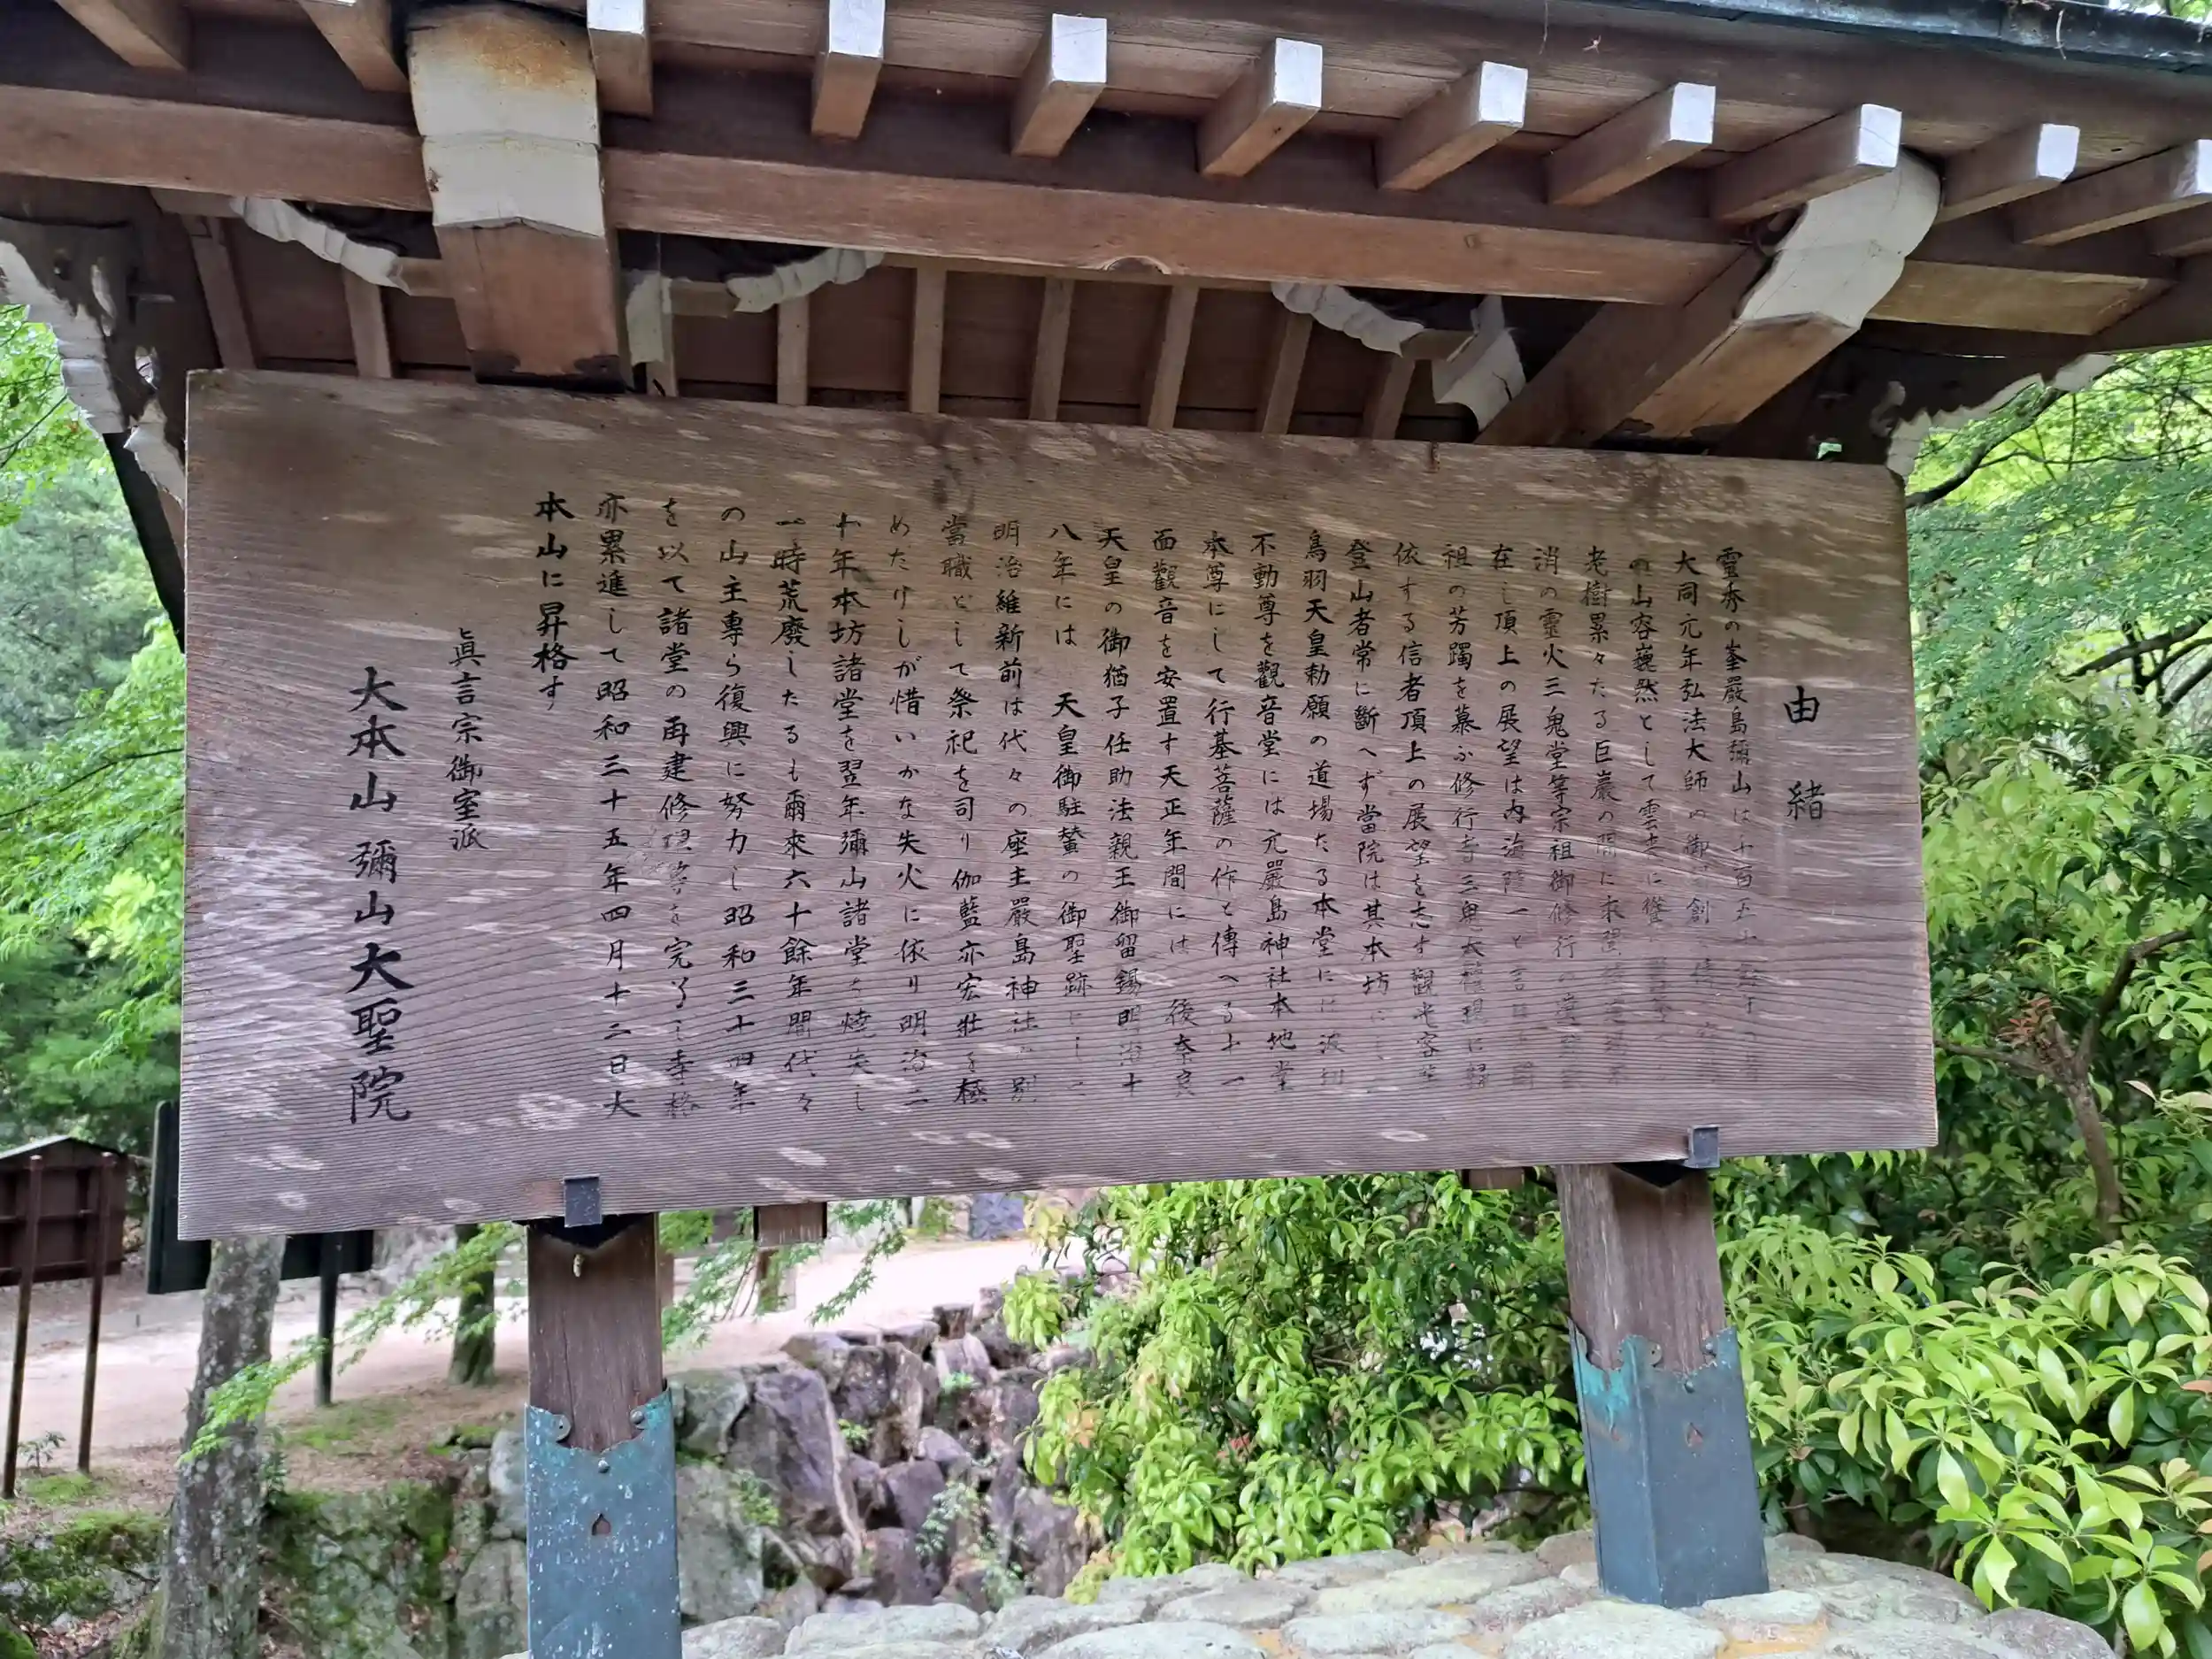 由緒
靈秀の峯嚴島彌山は千百五十
大同元年弘法大師の御 創
の山容巍然として雲表に聳
老樹累々たる巨巖の間に
消の靈火三鬼堂等宗祖御修行
在し頂上の展望は内海随一と
祖の芳躅を慕ふ修行者三鬼大權現に歸
依する信者頂上の展望を志す觀光客等
登山者常に斷へず當院は其本坊にし
鳥羽天皇勅願の道場たる本堂には波切
不動尊を觀音堂には元嚴島神社本地堂
本尊にして行基菩薩の作と傳へる十一
面觀音を安置す天正年間には 後奈良
天皇の御猶子任助法親王御留錫明治十
八年には 天皇御駐蟄の御聖跡にし
明治維新前は代々の座主嚴島神社 別
當職として祭祀を司り伽藍亦宏壯を極
めたけしが惜いかな失火に依り明治二
十年本坊諸堂を翌年彌山諸堂を燒失し
一時荒廢したるも爾來六十餘年間代々
の山主專ら復興に努力し昭和三十四年
を以て諸堂の再建修理等を完了し寺格
亦累進して昭和三十五年四月十二日大
本山に昇格す
眞言宗御室派
大本山 彌山大聖院